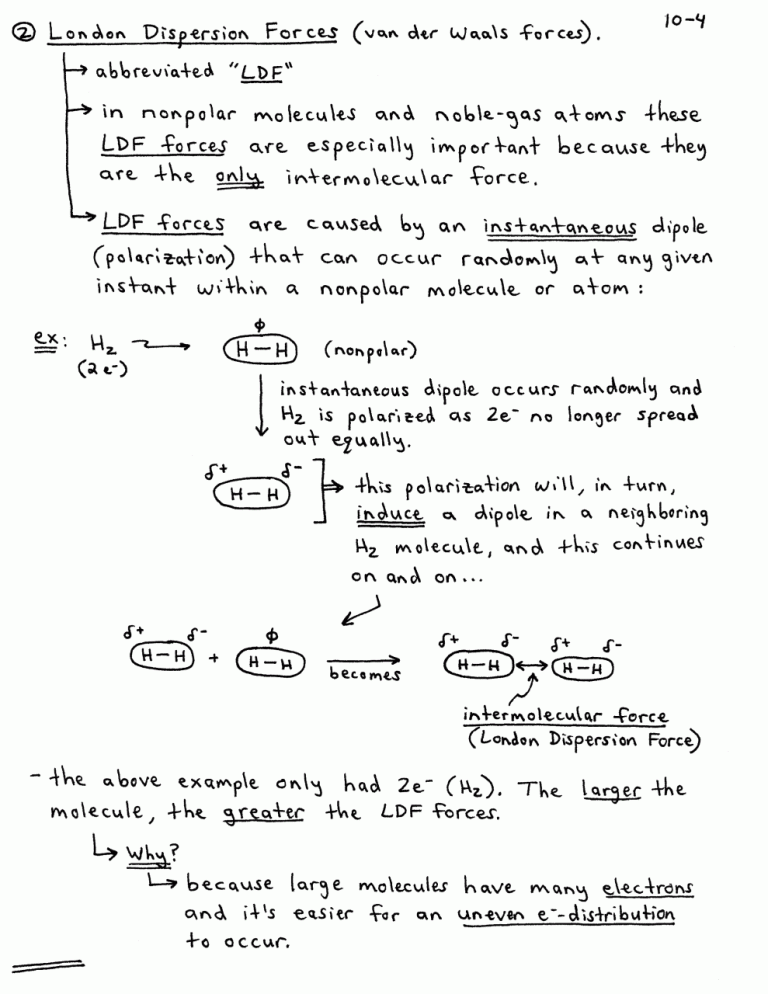 10-4
② London Dispersion Forces (van der Waals forces).
→ abbreviated "LDF"
→ in nonpolar molecules and noble-gas atoms these
LDF forces are especially important because they
are the only intermolecular force.
→ LDF forces are caused by an instantaneous dipole
(polarization) that can occur randomly at any given
instant within a nonpolar molecule or atom:
ex: H₂ → H–H (nonpolar)
ϕ
(2 e⁻)
instantaneous dipole occurs randomly and
H₂ is polarized as 2e⁻ no longer spread
out equally.
δ+ δ-
H–H → this polarization will, in turn,
induce a dipole in a neighboring
H₂ molecule, and this continues
on and on...
δ+ δ- ϕ δ+ δ- δ+ δ-
H–H + H–H becomes H–H ↔ H–H
intermolecular force
(London Dispersion Force)
- the above example only had 2e⁻ (H₂). The larger the
molecule, the greater the LDF forces.
↳ Why?
↳ because large molecules have many electrons
and it's easier for an uneven e⁻-distribution
to occur.